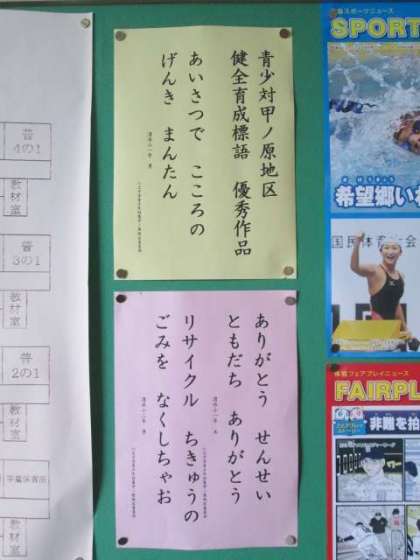 青少対甲ノ原地区
健全育成標語　優秀作品
あいさつで　こころの
げんき　まんたん
ありがとう　せんせい
ともだち　ありがとう
リサイクル　ちきゅうの
ごみを　なくしちゃお
普
4の1
教材室
普
3の1
教材室
普
2の1
教材室
学童保育所
教材室
スポーツニュース
SPORT
希望郷いわ
国民体育大会
体育フェアプレイニュース
FAIRPL
非難を拍